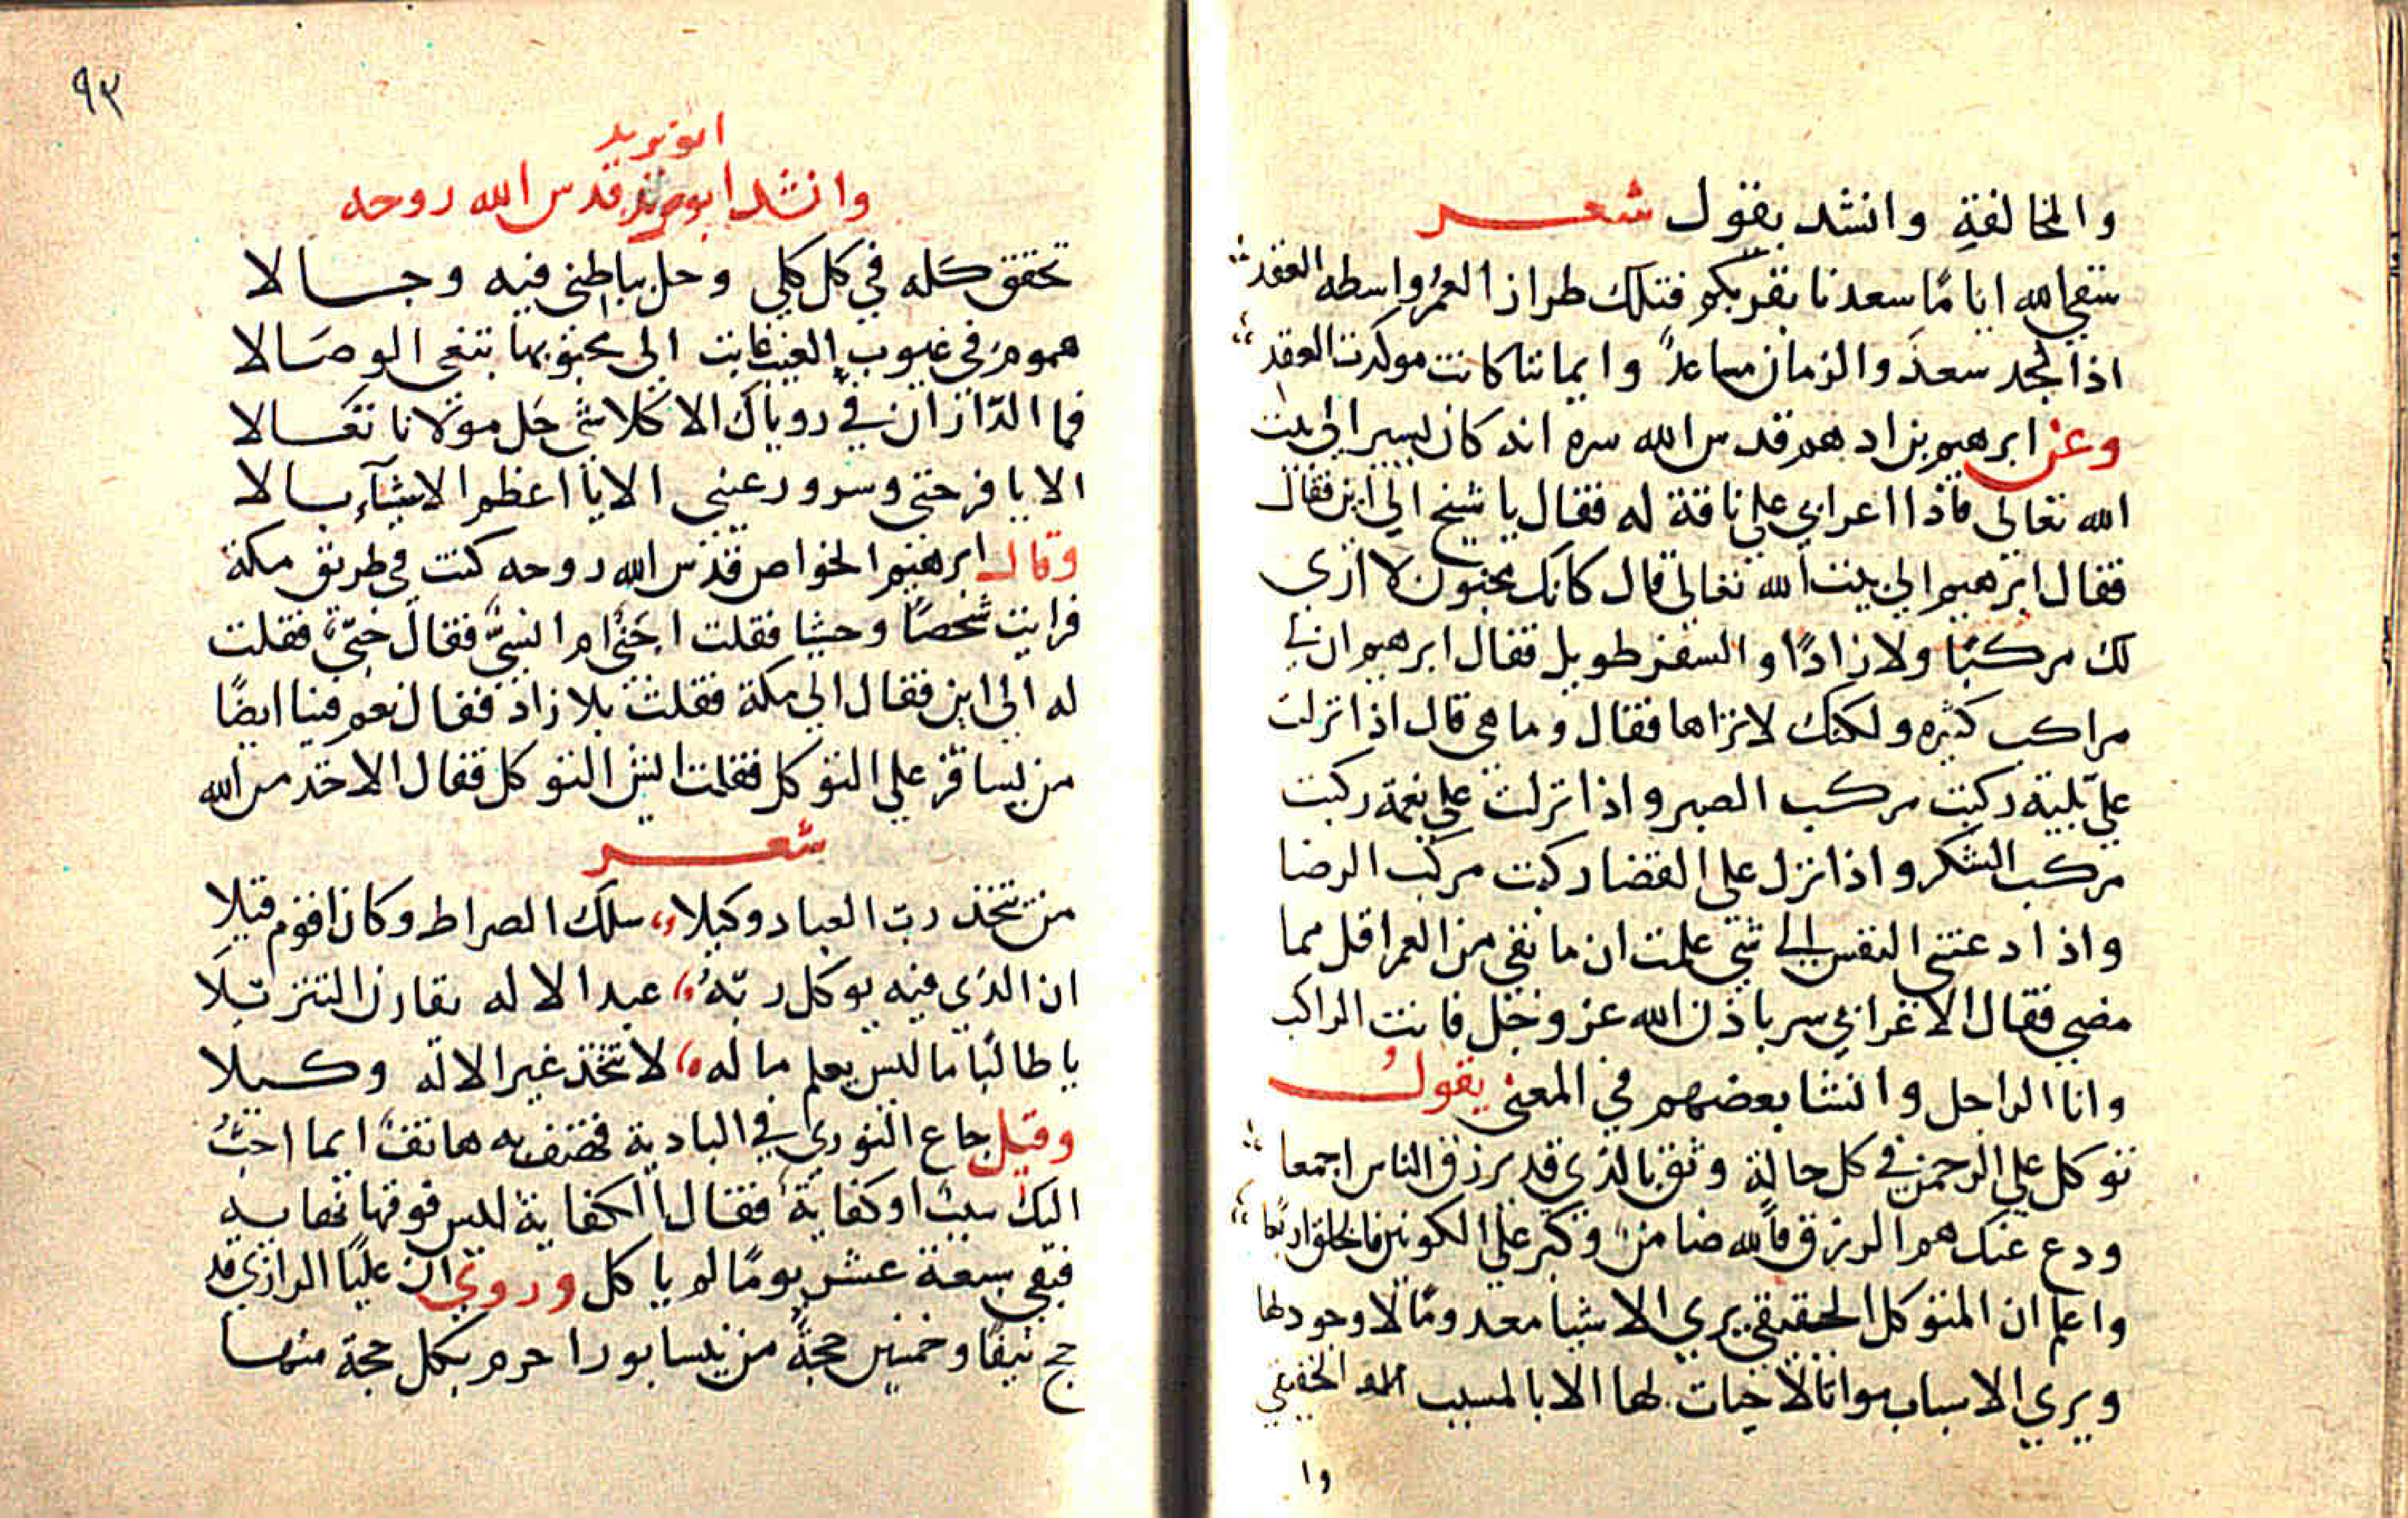 والمخالفة وانشد يقول شعر
سقى الله اياما سعدنا بقربكم فتلك طراز العمر واسطه العقد
اذا لمجد سعد والزمان مساعد وايماننا كانت موكدت العقد
وعن ابرهيم بن ادهم قدس الله سره انه كان يسير الى بيت
الله تعالى فاذا اعرابي على ناقة له فقال يا شيخ الى اين فقال
فقال ابرهيم الى بيت الله تعالى قال كانك مجنون لا ارى
لك مركبا ولا زادا والسفر طويل فقال ابرهيم ان لي
مراكب كثيره ولكنك لا تراها فقال وما هي قال اذا نزلت
علي بلية ركبت مركب الصبر واذا نزلت علي نعمة ركبت
مركب الشكر واذا نزل على القضا ركبت مركب الرضا
واذا دعتني النفس الى شي علمت ان ما بقي من العمر اقل مما
مضى فقال الاعرابي سر باذن الله عز وجل فانت الراكب
وانا الراجل وانشا بعضهم في المعنى يقول
توكل على الرحمن في كل حالة وثق بالذي قد يرزق الناس اجمعا
ودع عنك هم الرزق فالله ضامن وكبر على الكونين فالخلق اربعا
واعلم ان المتوكل الحقيقي يرى الاشيا معدوما لا وجود لها
ويرى الاسباب مواتا لا حيات لها الا بالمسبب الحقيقي
وا
٩٣
ابو يزيد
وانشد قدس الله روحه
تحقق كله في كل كلي وحل بباطني فيه وجالا
هموم في غيوب الغيب غابت الى محبوبها تبغي الوصالا
فما الداران في روياك الا كلا شي جل مولانا تعالا
الا يا فرحتي وسرور عيني الا يا اعظم الاشيآء بالا
وقال ابرهيم الخواص قدس الله روحه كنت في طريق مكة
فرايت شخصا وحشيا فقلت اجني ام انسي فقال جني فقلت
له الى اين فقال الى مكة فقلت بلا زاد فقال نعم فينا ايضا
من يسافر على التوكل فقلت ايش التوكل فقال الاخذ من الله
شعر
من يتخذ رب العباد وكيلا سلك الصراط وكان اقوم قيلا
ان الذي فيه يوكل ربه عبد الاله يقارن التنزيلا
يا طالبا ما ليس يعلم ما له لا تتخذ غير الاله وكيلا
وقيل جاع النوري في البادية فهتف به هاتف ايما احب
اليك سبب او كفاية فقال الكفاية ليس فوقها نهاية
فبقي سبعة عشر يوما لم ياكل وروي ان عليا الرازي قد
حج نيفا وخمسين حجة من نيسابور احرم بكل حجة منها